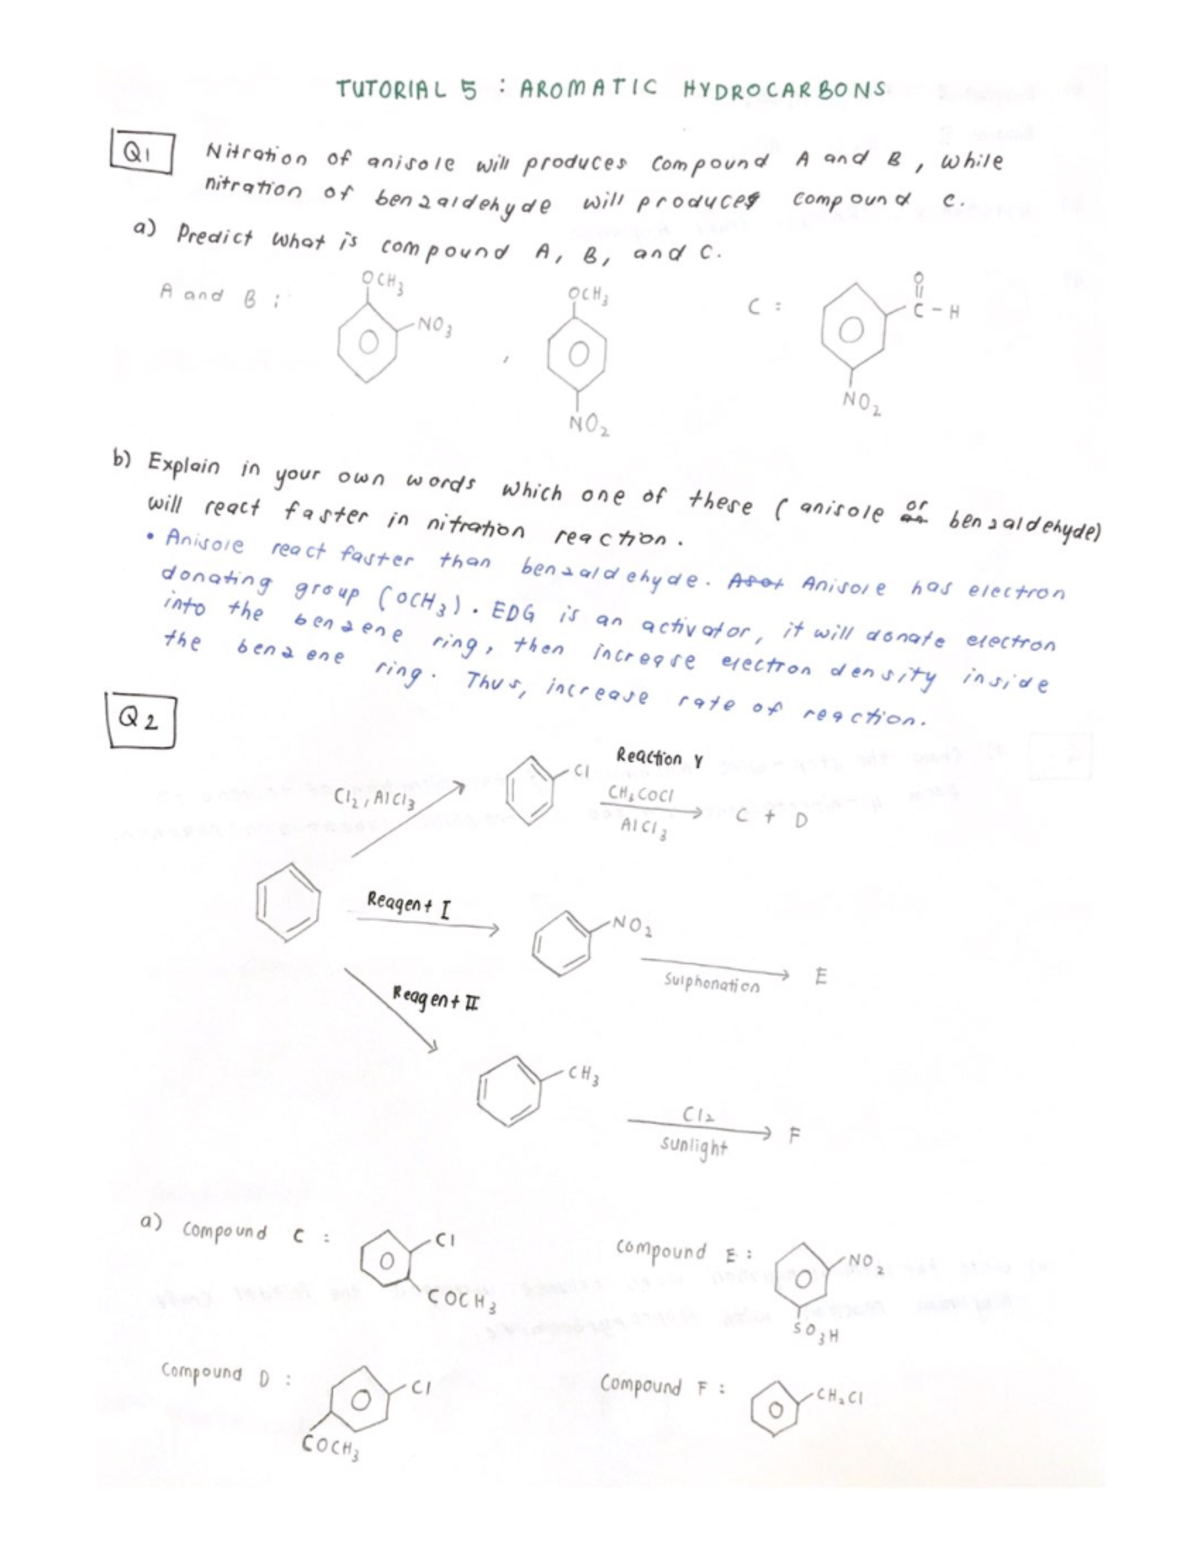 TUTORIAL 5 : AROMATIC HYDROCARBONS
Q1
Nitration of anisole will produces compound A and B, while
nitration of benzaldehyde will produces compound c.
a) Predict what is compound A, B, and C.
A and B :
OCH3
NO3
,
OCH3
NO2
C :
O
C - H
NO2
b) Explain in your own words which one of these (anisole or benzaldehyde)
will react faster in nitration reaction.
• Anisole react faster than benzaldehyde. Anisole has electron
donating group (OCH3). EDG is an activator, it will donate electron
into the benzene ring, then increase electron density inside
the benzene ring. Thus, increase rate of reaction.
Q2
Cl2, AlCl3
Cl
Reaction Y
CH3COCl
AlCl3
C + D
Reagent I
NO2
Sulphonation
E
Reagent II
CH3
Cl2
sunlight
F
a) Compound C :
Cl
COCH3
Compound E :
NO2
SO3H
Compound D :
Cl
COCH3
Compound F :
CH2Cl